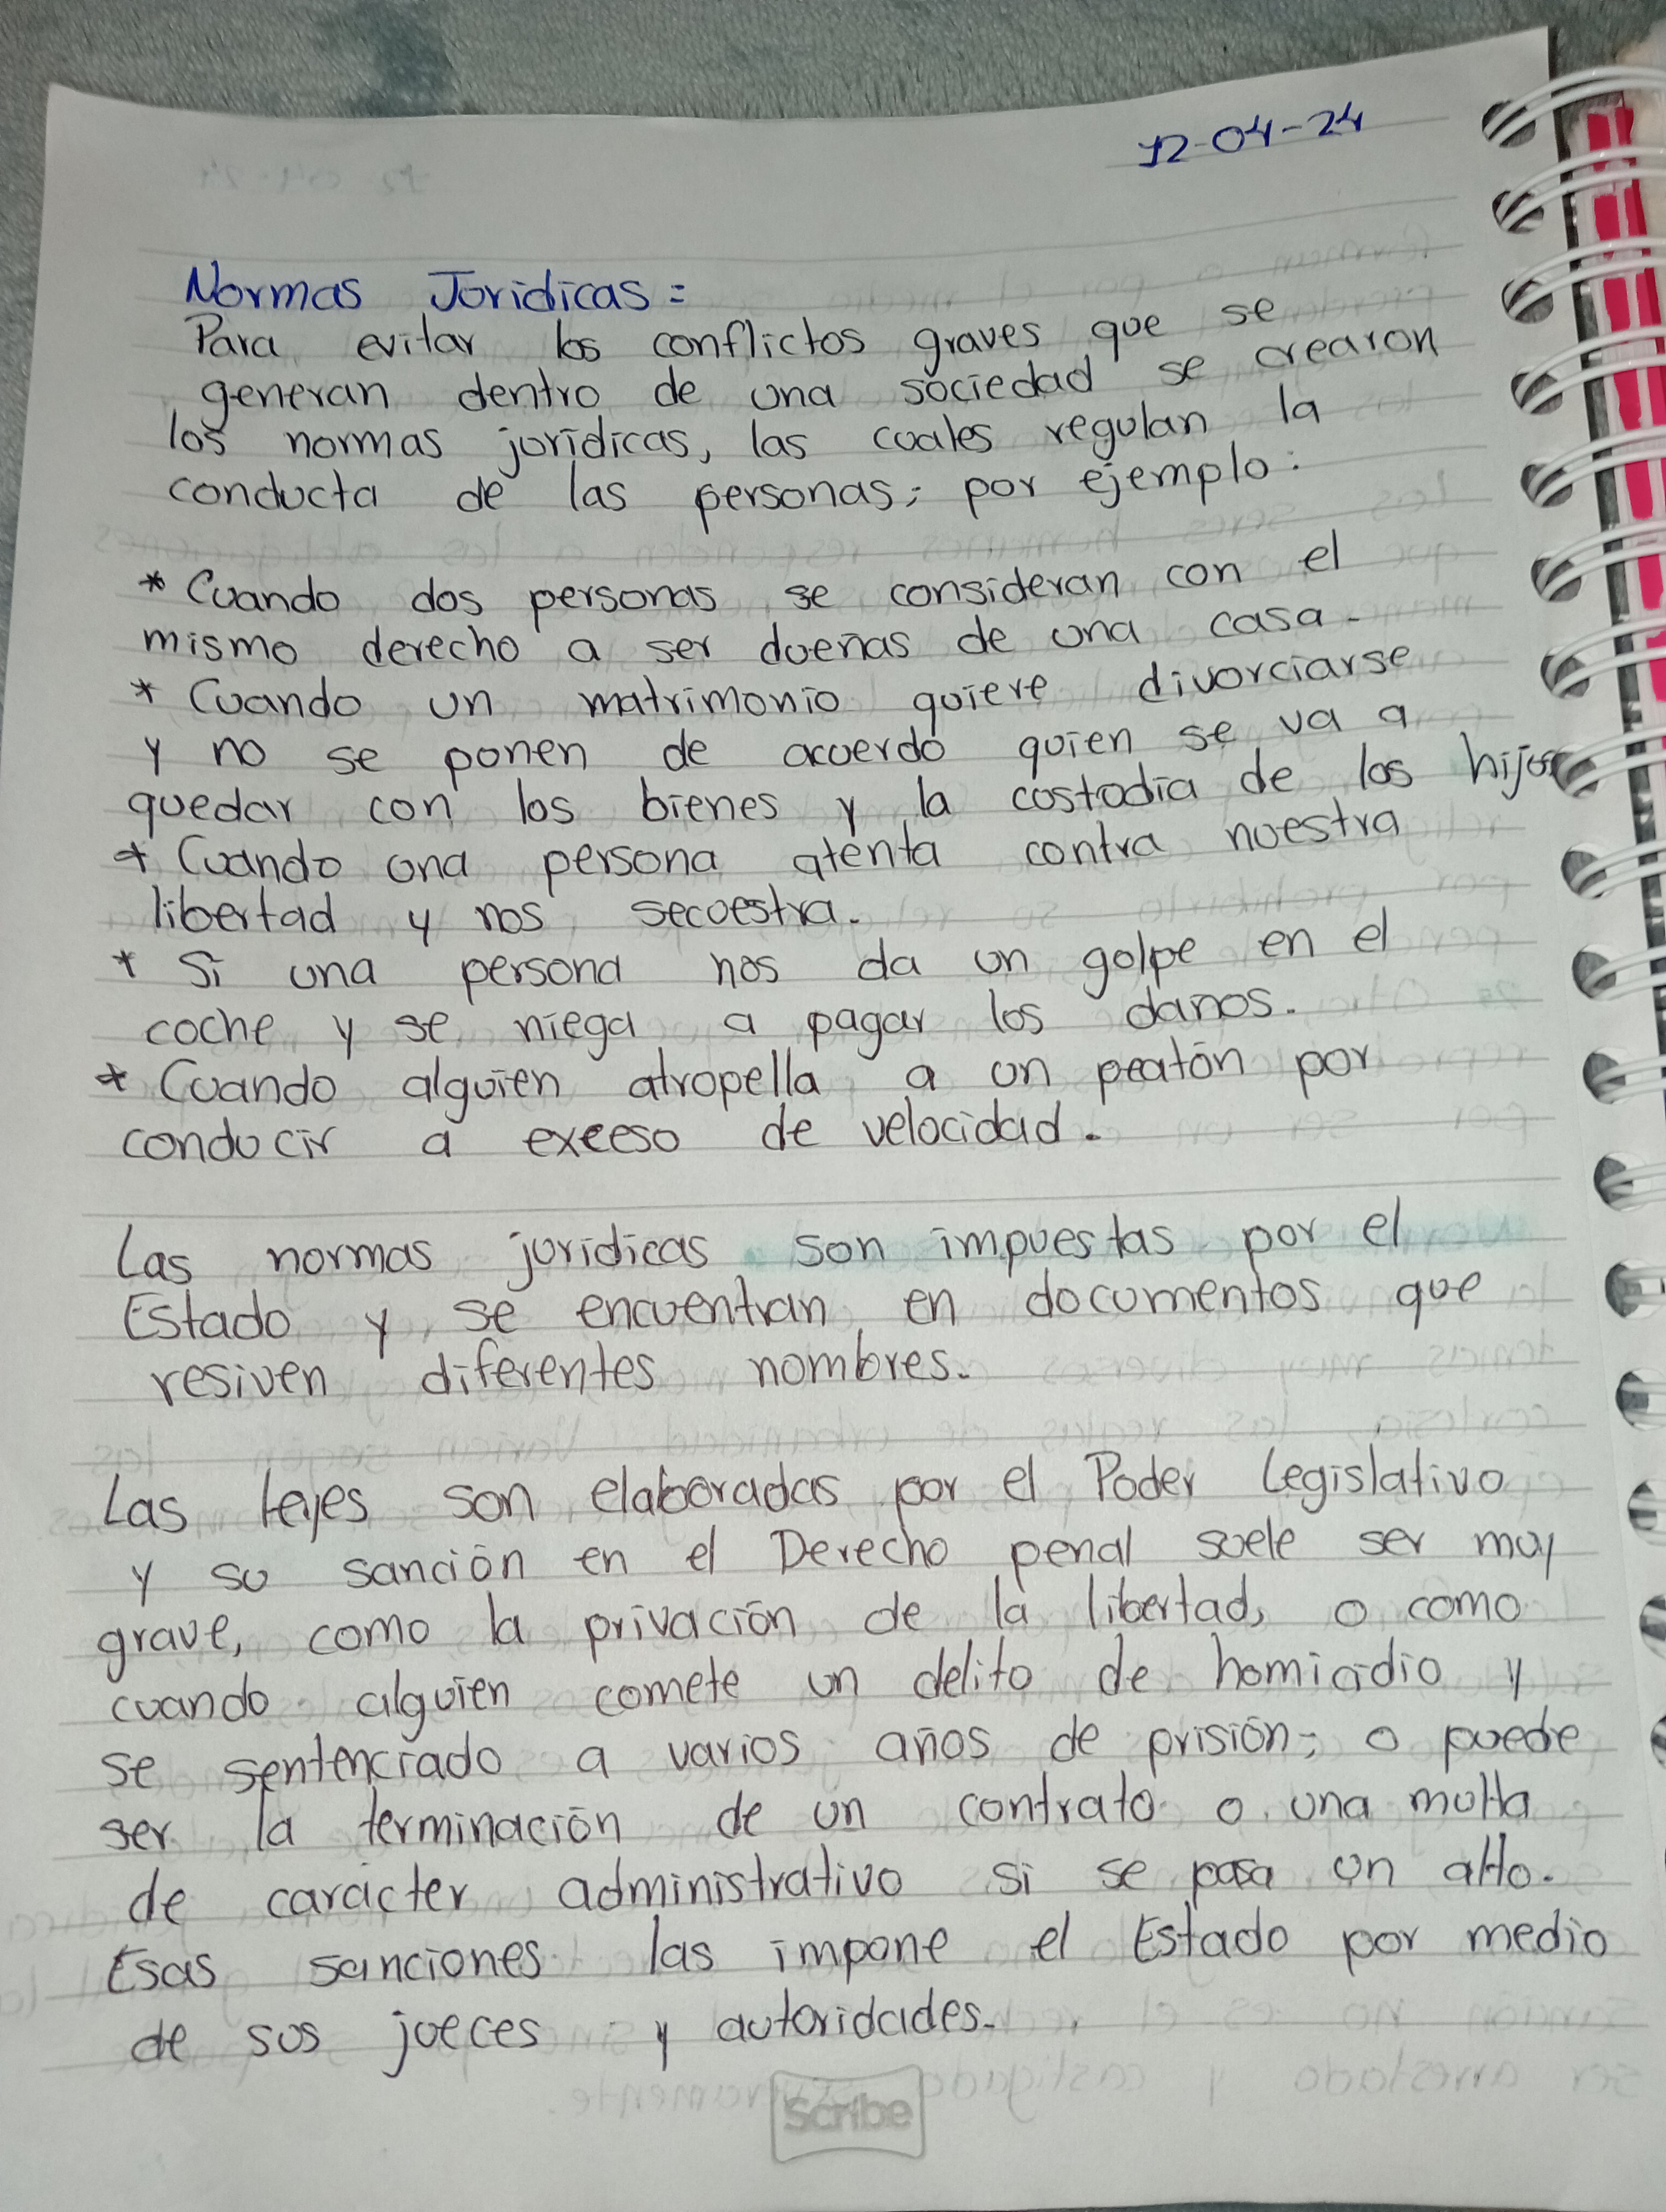 12-04-24
Normas Joridicas:
Para evitar los conflictos graves que se
generan dentro de una sociedad se crearon
los normas juridicas, las cuales regulan la
conducta de las personas; por ejemplo:
* Cuando dos personas se consideran con el
mismo derecho a ser dueñas de una casa.
* Cuando un matrimonio quiere divorciarse
y no se ponen de acuerdo quien se va a
quedar con los bienes y la costodia de los hijos
* Cuando una persona atenta contra nuestra
libertad y nos secuestra.
* Si una persona nos da un golpe en el
coche y se niega a pagar los danos.
* Cuando alguien atropella a un peatón por
conducir a exceso de velocidad.
Las normas juridicas son impuestas por el
Estado y se encuentran en documentos que
resiven diferentes nombres.
Las leyes son elaboradas por el Poder Legislativo
y su sanción en el Derecho penal suele ser muy
grave, como la privación de la libertad, o como
cuando alguien comete un delito de homicidio y
se sentenciado a varios años de prisión; o puede
ser la terminación de un contrato o una multa
de carácter administrativo si se pasa un alto.
Esas sanciones las impone el Estado por medio
de sus jueces y autoridades.
Scribe